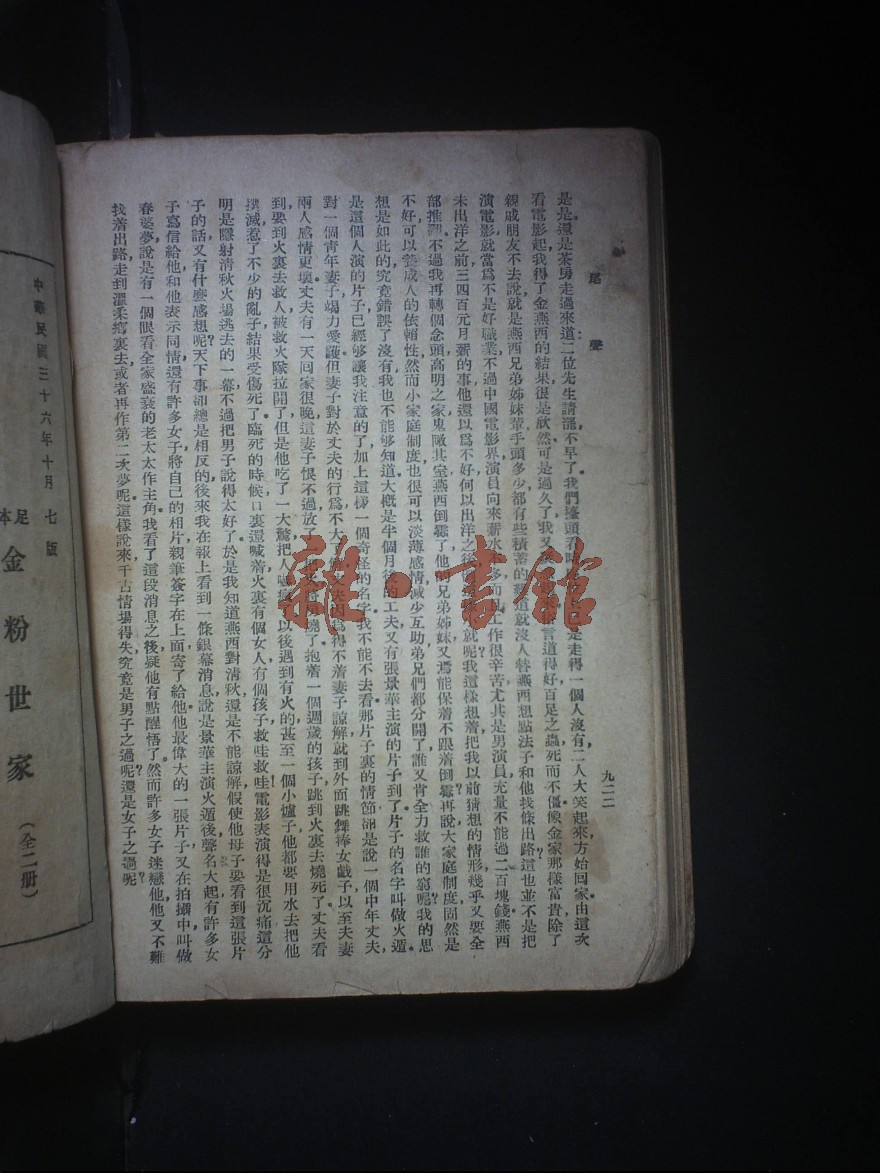 尾聲
九二二
是是還是茶房走過來道二位先生請罷不早了我們擡頭看時
是走得一個人沒有二人大笑起來方始回家由這次
看電影起我得了金燕西的結果很是欣然可是過久了我又
言道得好百足之蟲死而不僵像金家那樣富貴除了
親戚朋友不去說就是燕西兄弟姊妹輩手頭多少都有些積蓄的
道就沒人替燕西想點法子和他找條出路這也並不是把
演電影就當爲不是好職業不過中國電影界演員向來薪水
多而
工作很辛苦尤其是男演員充量不能過二百塊錢燕西
未出洋之前三四百元月薪的事他還以爲不好何以出洋之後
就呢我這樣想着把我以前猜想的情形幾乎又要全
部推翻不過我再轉個念頭高明之家鬼瞰其室燕西倒霉了他的兄弟姊妹又焉能保着不跟着倒霉再說大家庭制度固然是
不好可以養成人的依賴性然而小家庭制度也很可以淡薄感情減少互助弟兄們都分開了誰又肯全力救誰的窮呢我的思
想是如此的究竟錯誤了沒有我也不能够知道大概是半個月後的工夫又有張景華主演的片子到了片子的名字叫做火遁
是這個人演的片子已經够讓我注意的了加上這樣一個奇怪的名字我不能不去看那片子裏的情節卻是說一個中年丈夫，
對一個青年妻子竭力愛護但妻子對於丈夫的行爲不大
夫因爲得不着妻子諒解就到外面跳舞捧女戲子以至夫妻
兩人感情更壞丈夫有一天回家很晚這妻子恨不過放了
燒了抱着一個週歲的孩子跳到火裏去燒死了丈夫看
到要到火裏去救人被救火隊拉開了但是他吃了一大驚把人
以後遇到有火的甚至一個小爐子他都要用水去把他
撲滅惹了不少的亂子結果受傷死了臨死的時候口裏還喊着火裏有個女人有個孩子救哇救哇電影表演得是很沉痛這分
明是隱射清秋火場逃去的一幕不過把男子說得太好了於是我知道燕西對清秋還是不能諒解假使他母子要看到這張片
子的話又有什麼感想呢天下事卻總是相反的後來我在報上看到一條銀幕消息說是景華主演火遁後聲名大起有許多女
子寫信給他和他表示同情還有許多女子將自己的相片親筆簽字在上面寄了給他他最偉大的一張片子又在拍攝中叫做
春婆夢說是有一個眼看全家盛衰的老太太作主角我看了這段消息之後疑他有點醒悟了然而許多女子迷戀他他又不難
找着出路走到溫柔鄉裏去或者再作第二次夢呢這樣說來千古情場得失究竟是男子之過呢？還是女子之過呢？
中華民國三十六年十月七版
足本
金粉世家
（全二册）
雜·書館